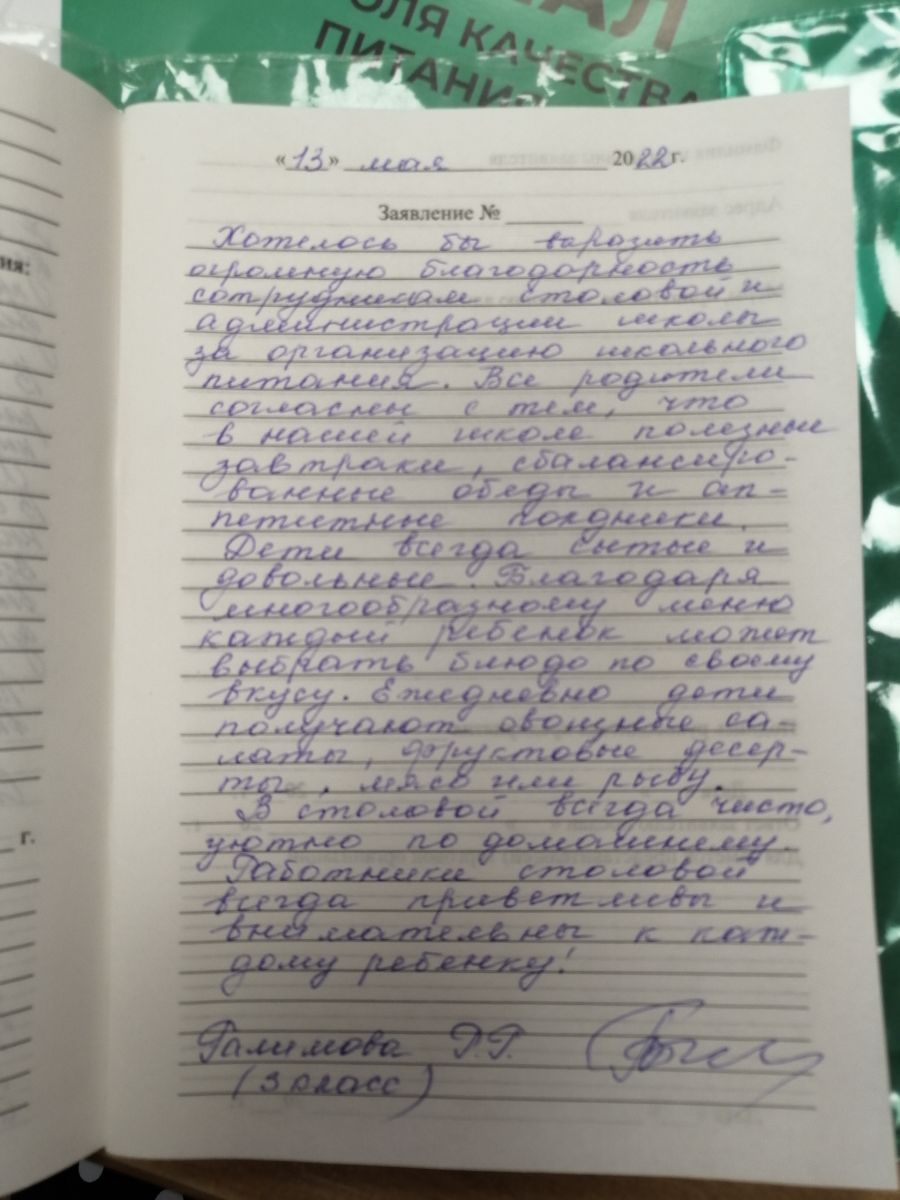 АЛ
ОЛЯ КАЧЕСТВА
ПИТАНИЯ
ия:
г.
«13» мая 2022г.
Заявление №
Хотелось бы выразить
огромную благодарность
сотрудникам столовой и
администрации школы
за организацию школьного
питания. Все родители
согласны с тем, что
в нашей школе полезные
завтраки, сбалансиро-
ванные обеды и ап-
петитные полдники.
Дети всегда сытые и
довольные. Благодаря
многообразному меню
каждый ребенок может
выбрать блюдо по своему
вкусу. Ежедневно дети
получают овощные са-
латы, фруктовые десер-
ты, мясо или рыбу.
В столовой всегда чисто,
уютно по домашнему.
Работники столовой
всегда приветливы и
внимательны к каж-
дому ребенку!
Галимова Р.Р.
(3 класс)